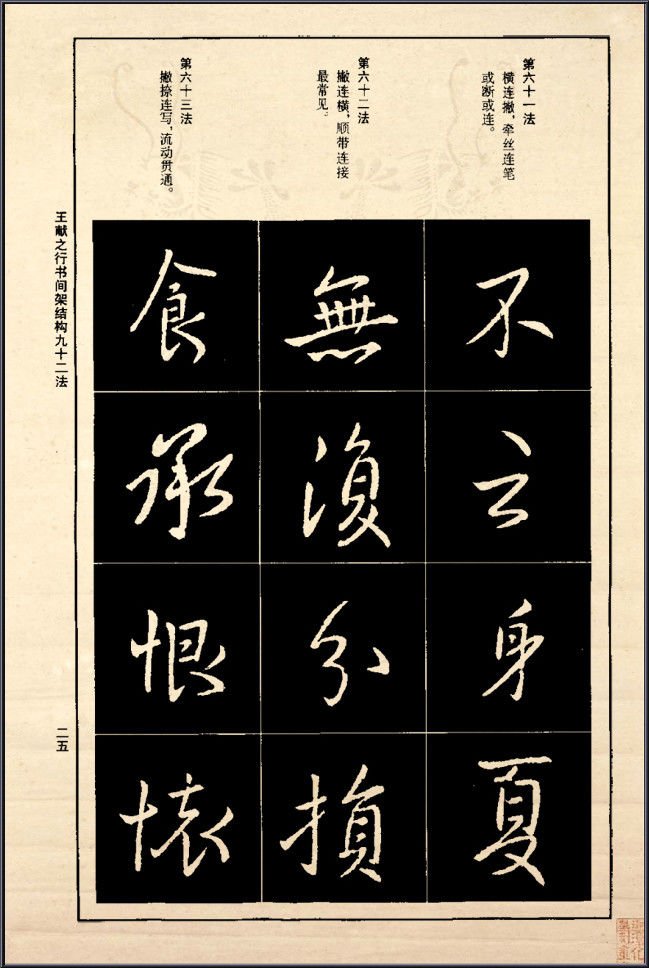 第六十一法
横连撇，牵丝连笔
或断或连。
第六十二法
撇连横，顺带连接
最常见。
第六十三法
撇捺连写，流动贯通。
不
云
身
夏
無
復
分
損
食
承
恨
懷
王献之行书间架结构九十二法
二五